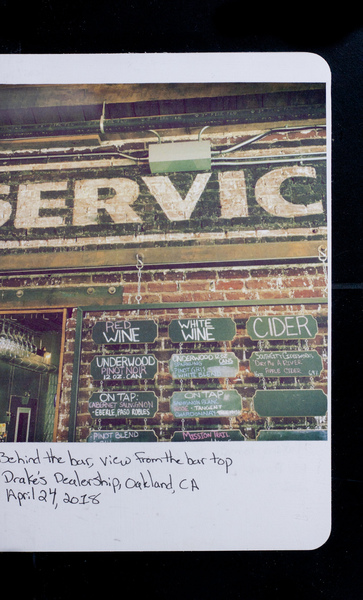 SERVIC
RED WINE
WHITE WINE
CIDER
UNDERWOOD
PINOT NOIR
12 OZ. CAN
UNDERWOOD
PINOT GRIS
DRY
CIDER
ON TAP:
CABERNET SAUVIGNON
EBERLE, PASO ROBLES
ON TAP:
ROSE TANGENT
PINOT BLEND
MISSION
Behind the bar, view from the bar top
Drake's Dealership, Oakland, CA
April 24, 2018